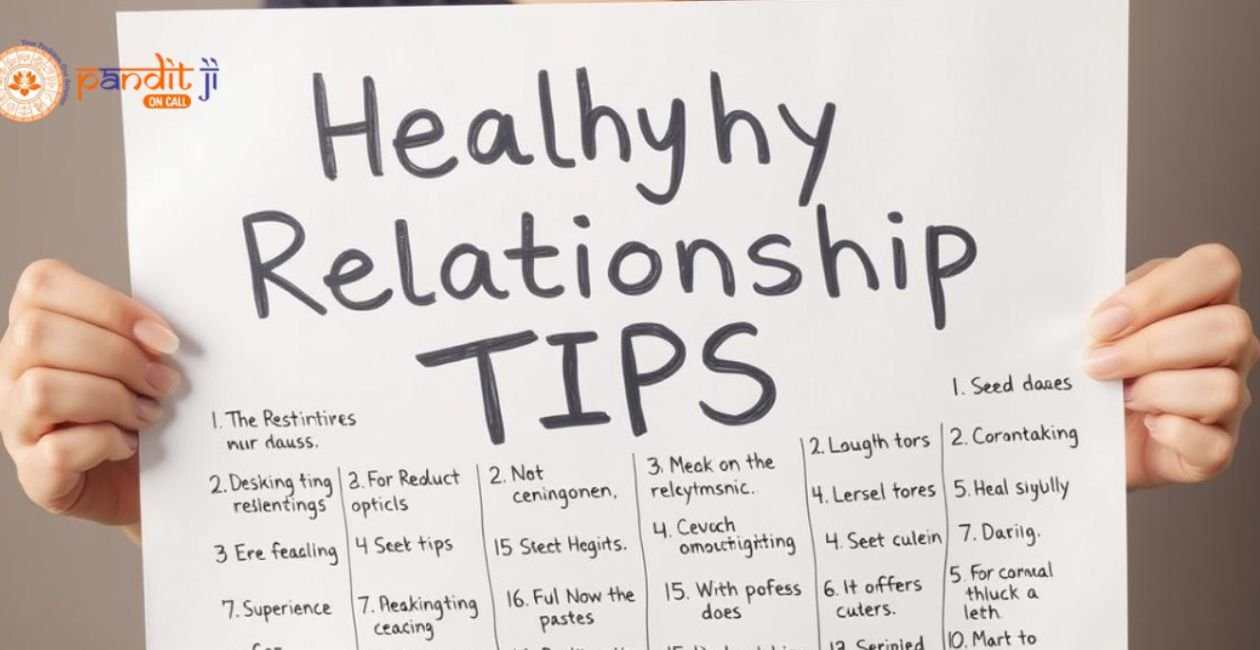 Your Problem Our Solution
pandit जी
ON CALL
Healhyhy
Relationship
TIPS
1. The Restintires
nur dauss.
2. Desking ting
resllentings
3 Ere feaalling
7. Superience
3. For Reduct
opticls
4 Seet tips
7. Peakingting
ceacing
2. Not
ceningonen,
15 Stect Hegirts.
16. Ful Now the
pastes
3. Meak on the
relcytmsnic.
4. Cevach
omoutigirting
15. With pofess
does
2. Lougth tors
4. Lersel fores
4. Seet culein
6. It offers
cuters.
1. Seed daaes
2. Corantaking
5. Heal sigully
7. Darilg.
5. For cormal
thluck a
leth.
10. Mart to